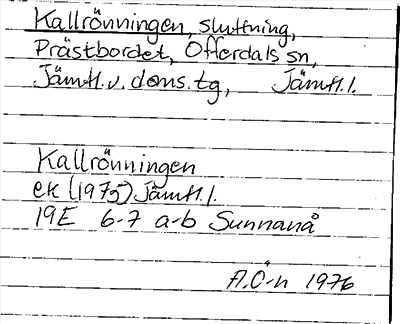 Kallrönningen, sluttning,
Prästbordet, Offerdals sn,
Jämtl.v.doms.tg, Jämtl.l.
Kallrönningen
ek (1975) Jämtl.l.
19E 6-7 a-b Sunnanå
A.Ö-n 1976